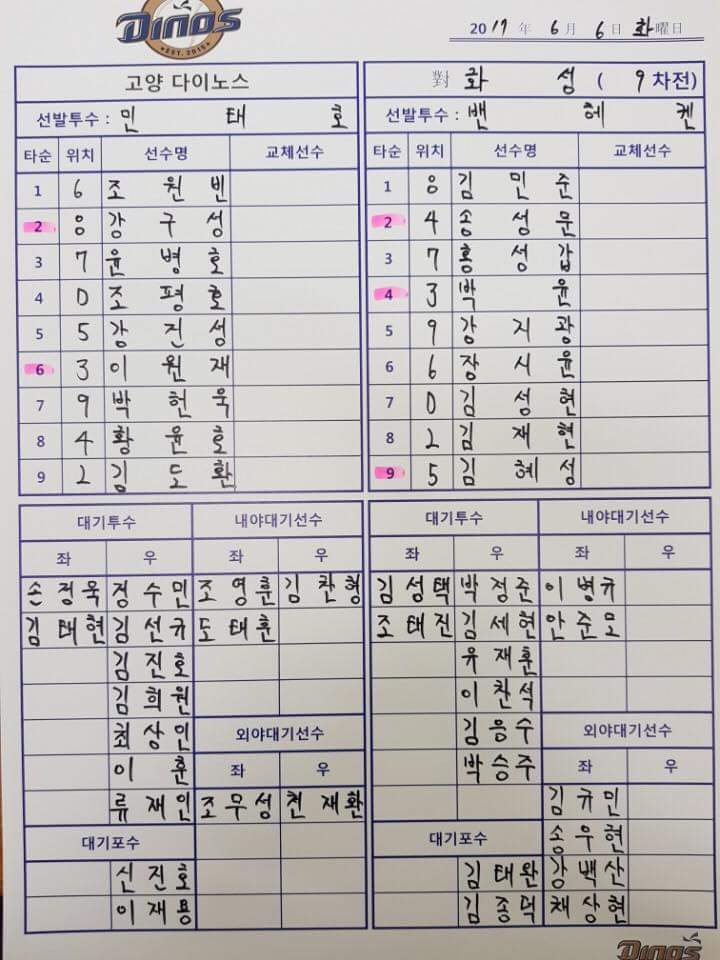 DINOS
EST. 2013
2017 年 6 月 6 日 화 曜日
고양 다이노스
선발투수 : 민 태 호
타순 위치 선수명 교체선수
1 6 조 원 빈
2 8 강 구 성
3 7 윤 병 호
4 D 조 평 호
5 5 강 진 성
6 3 이 원 재
7 9 박 헌 욱
8 4 황 윤 호
9 2 김 도 환
對 화 성 ( 9 차전)
선발투수 : 밴 헤 켄
타순 위치 선수명 교체선수
1 8 김 민 준
2 4 송 성 문
3 7 홍 성 갑
4 3 박 윤
5 9 강 지 광
6 6 장 시 윤
7 D 김 성 현
8 2 김 재 현
9 5 김 혜 성
대기투수 내야대기선수
좌 우 좌 우
손정욱 정수민 조영훈 김찬형
김태현 김선규 도태훈
김진호
김희원
최상인 외야대기선수
이 훈 좌 우
류재인 조무성 천재환
대기포수
신진호
이재용
대기투수 내야대기선수
좌 우 좌 우
김성택 박정준 이병규
조태진 김세현 안준모
유재훈
이찬석
김응수 외야대기선수
박승주 좌 우
김규민
대기포수 송우현
김태완 강백산
김종덕 채상현
DINOS